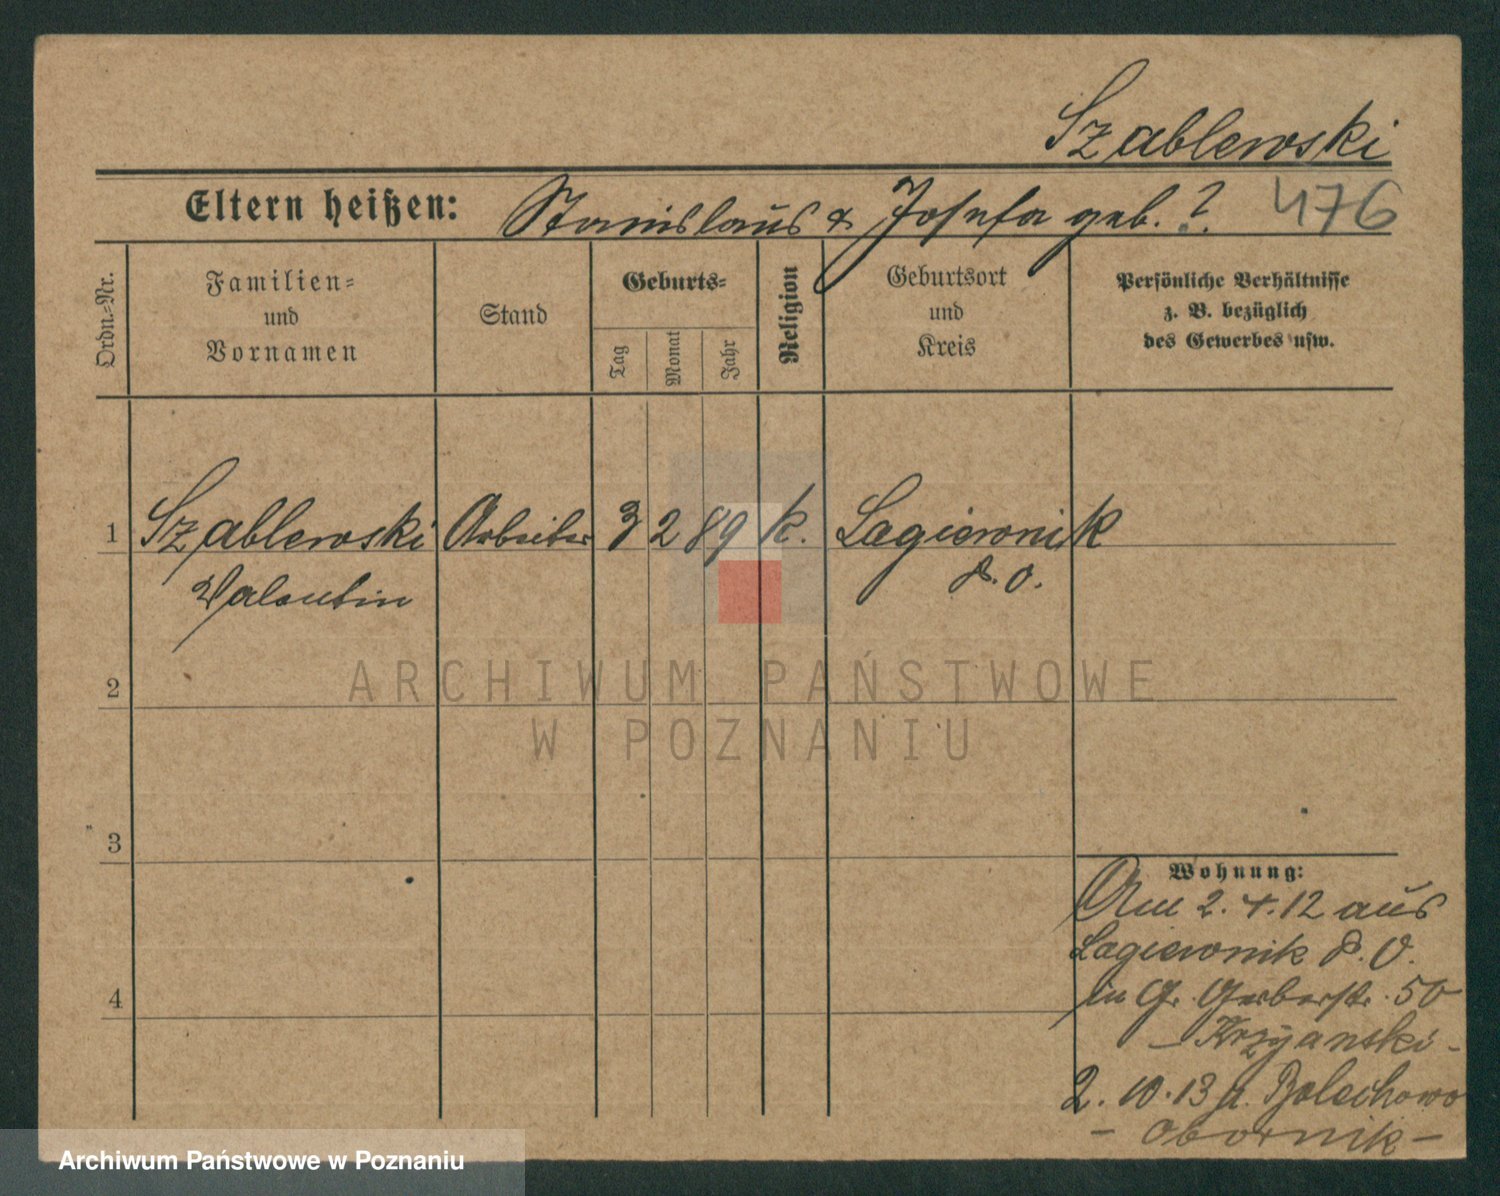 Szablewski
Eltern heißen: Stanislaus & Josefa geb. ? 476
Ordn.=Nr.
Familien=
und
Vornamen
Stand
Geburts=
Tag Monat Jahr
Religion
Geburtsort
und
Kreis
Persönliche Verhältnisse
z. B. bezüglich
des Gewerbes usw.
1 Szablewski Arbeiter 3 2 89 k. Lagiewnik
Valentin P. O.
2
ARCHIWUM PAŃSTWOWE
W POZNANIU
3
Wohnung:
Am 2. 4. 12 aus
Lagiewnik P. O.
4 in Gr. Gerberstr. 50
- Krzyanski -
2. 10. 13 n. Bolechowo
- Obornik -
Archiwum Państwowe w Poznaniu